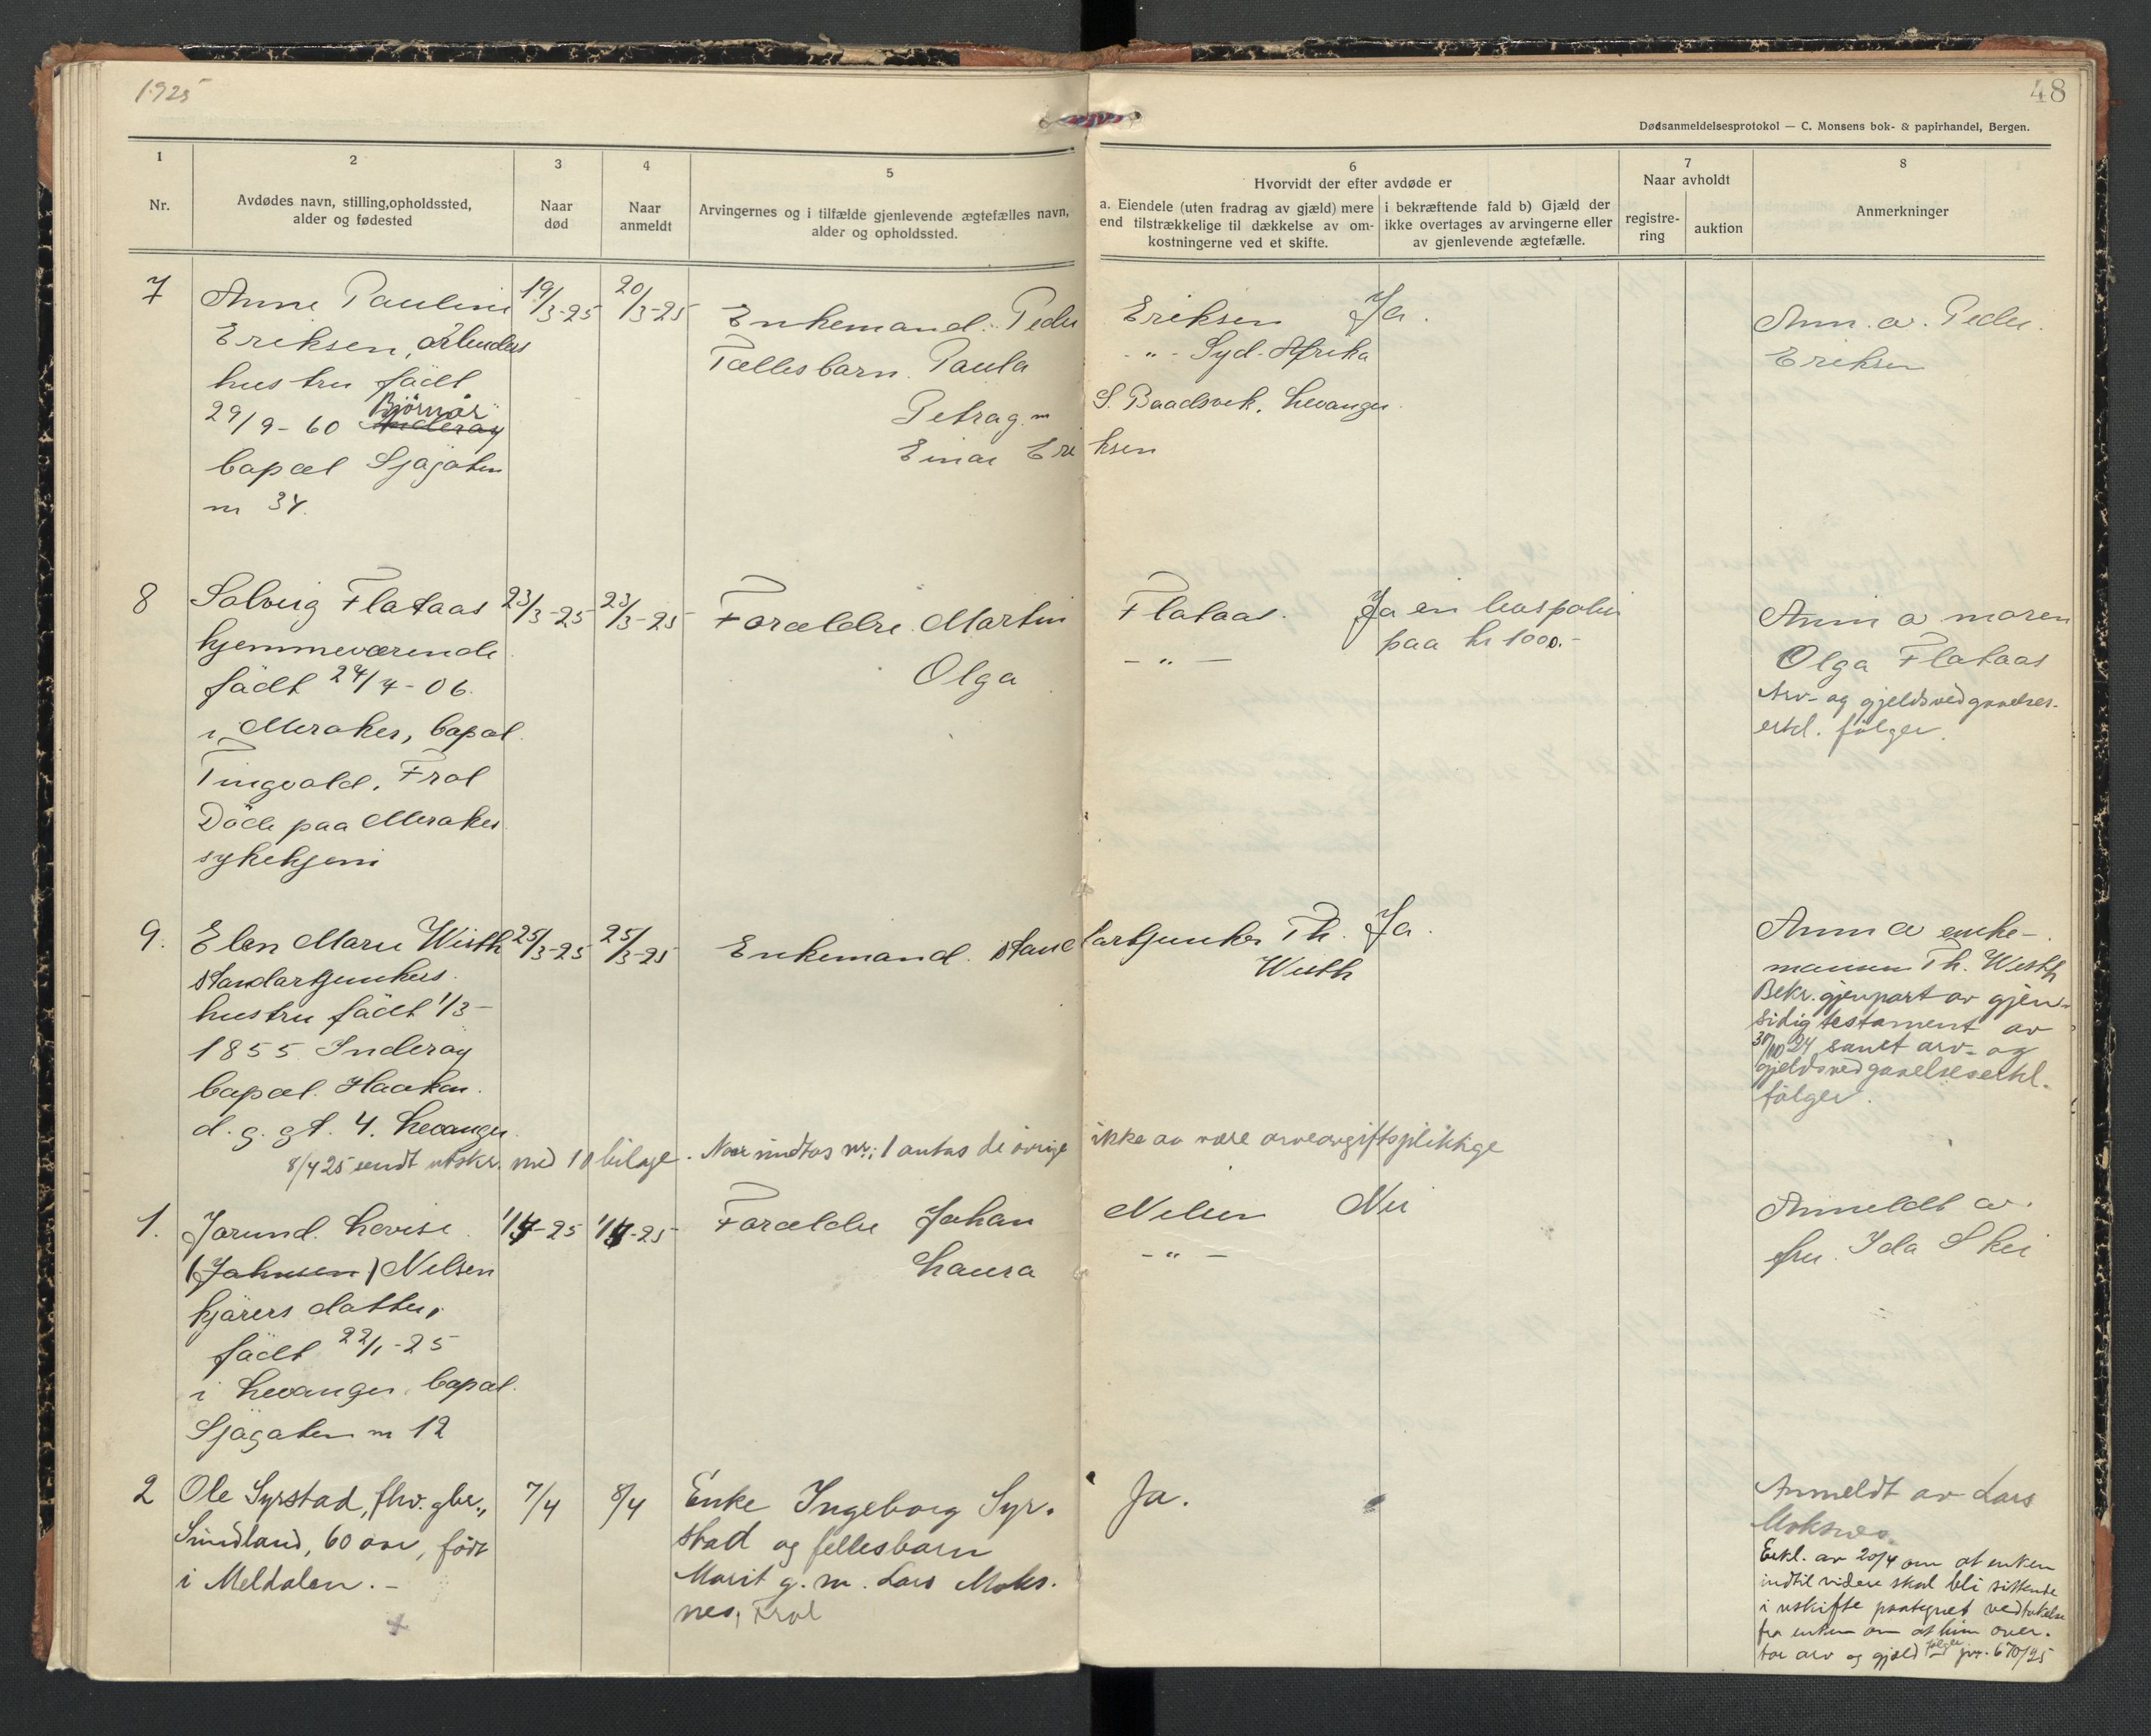 1925
48
Dødsanmeldelsesprotokol — C. Monsens bok- & papirhandel, Bergen.
1
Nr.
2
Avdødes navn, stilling, opholdssted,
alder og fødested
3
Naar
død
4
Naar
anmeldt
5
Arvingernes og i tilfælde gjenlevende ægtefælles navn,
alder og opholdssted.
6
Hvorvidt der efter avdøde er
a. Eiendele (uten fradrag av gjæld) mere
end tilstrækkelige til dækkelse av om-
kostningerne ved et skifte.
i bekræftende fald b) Gjæld der
ikke overtages av arvingerne eller
av gjenlevende ægtefælle.
7
Naar avholdt
registre-
ring
auktion
8
Anmerkninger
7
Anne Pauline
Eriksen, arbeiders
hustru født
Björnör
29/9-60 Inderøy
bopæl Sjøgaten
nr 34.
19/3-25
20/3-25
Enkemand. Peder Eriksen
Fællesbarn. Paula -"- Syd-Afrika
Petra g. m S. Baadsvik, Levanger.
Einar Eriksen
Ja.
Anm. a. Peder
Eriksen
8
Solveig Flataas
hjemmeværende
født 24/4-06.
i Meraker, bopæl
Tingvold, Frol
Døde paa Meraker
sykehjem
23/3-25
23/3-25
Forældre. Martin Flataas.
Olga -"-
Ja en livspolise
paa kr 1000.-
Anm a moren
Olga Flataas
Arv- og gjeldsvedgaaelses-
erkl. følger.
9.
Elen Marie Wisth
standartjunkers
hustru født 1/3-
1855 Inderøy
bopæl. Haakon
d. g. gt. 4. Levanger
25/3-25
25/3-25
Enkemand. standartjunker Th.
Wisth
Ja.
Anm a enke-
manden Th. Wisth
Bekr. gjenpart av gjen-
sidig testament av
30/10 24 samt arv- og
gjeldsvedgaaelseserkl.
følger.
8/4 25 sendt utskr. med 10 bilage. Naar undtas nr. 1 antas de øvrige ikke av være arveavgiftspliktige
1.
Jorund Lovise
(Johnsen) Nelsen
kjørers datter,
født 22/1-25
i Levanger. bopæl.
Sjøgaten nr 12
1/4-25
1/4-25
Forældre Johan Nelsen
Laura -"-
Nei
Anmeldt av.
fru. Ida Skei
2
Ole Syrstad, fhv. gbr.,
Sundland, 60 aar, født
i Meldalen. -
7/4
8/4
Enke Ingeborg Syr-
stad og fellesbarn
Marit g. m. Lars Moks-
nes, Frol
Ja.
Anmeldt av Lars
Moksnes
Erkl. av 20/4 om at enken
indtil videre skal bli sittende
i uskifte paategnet vedtakelse
fra enken om at hun over-
tar arv og gjæld følger jnr. 670/25